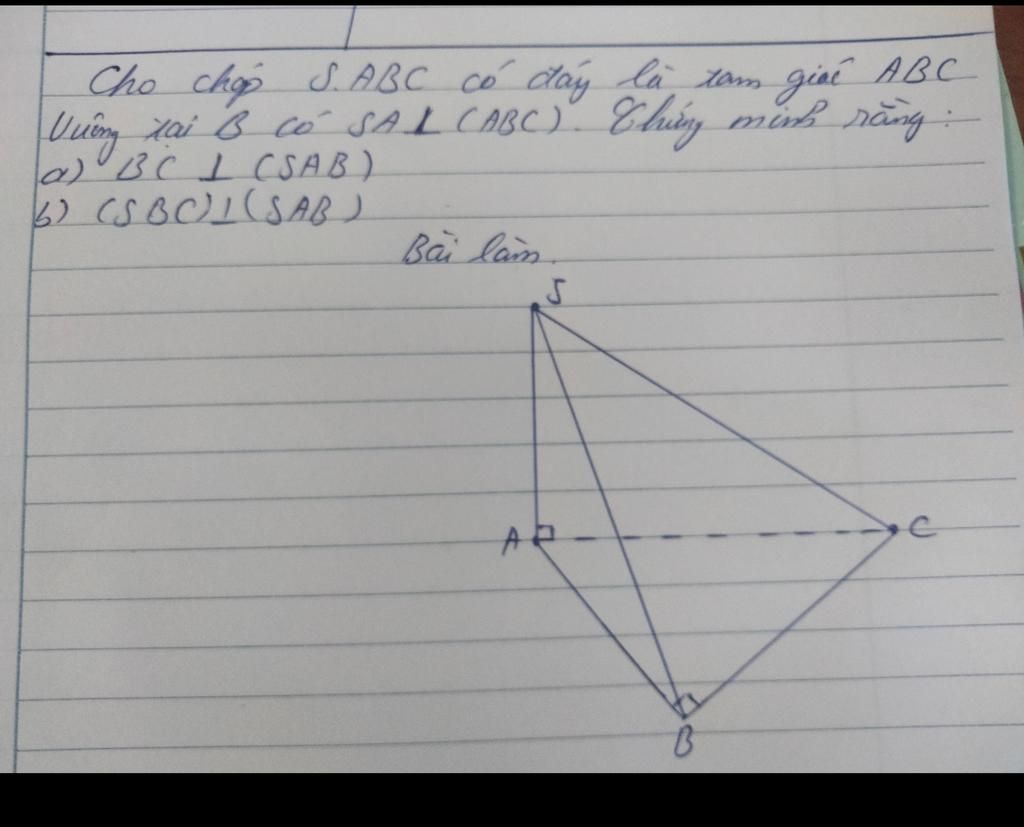 Cho chóp S.ABC có đáy là tam giác ABC
Vuông tại B có SA⊥(ABC). Chứng minh rằng:
a) BC ⊥ (SAB)
b) (SBC)⊥(SAB)
Bài làm.
S
A
C
B